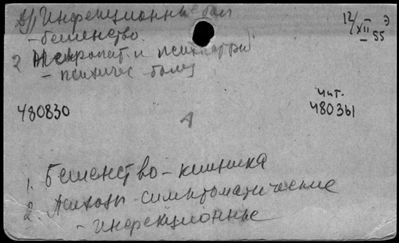 1) Инфекционные бол
- бешенство.
12/XII 55 Э
2 Невропат и психиатрия
- психичес. болез
480830
чит.
480361
4
1. Бешенство - клиника
2. Психозы - симптоматические
- инфекционные